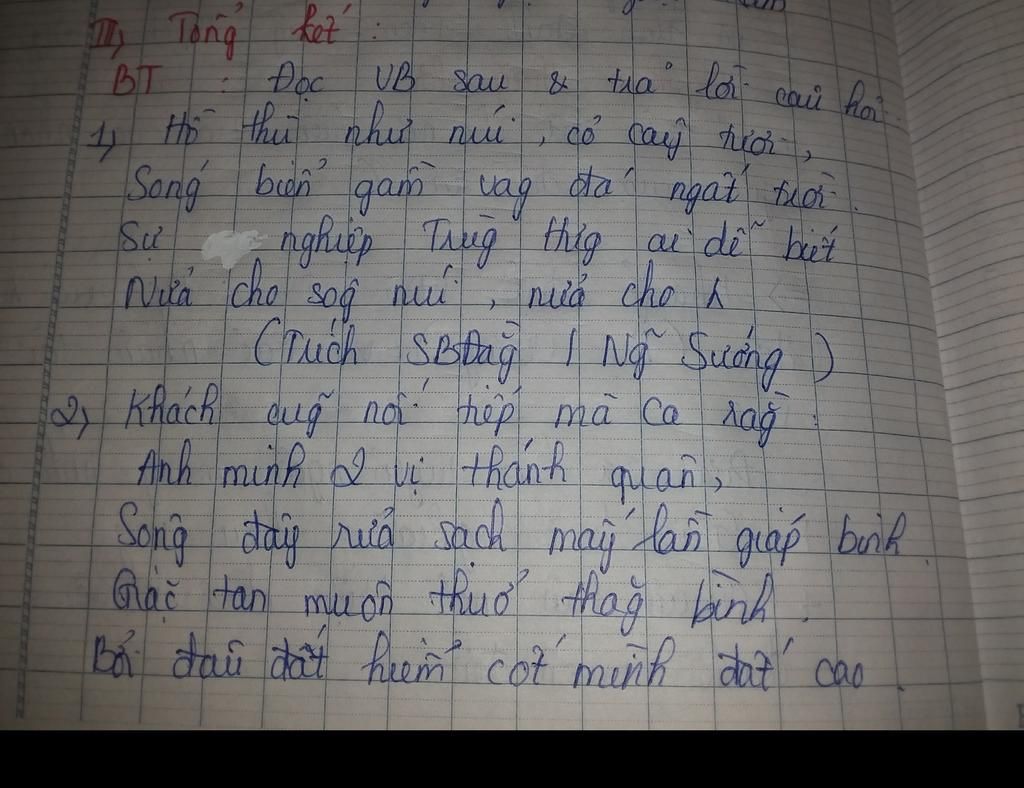 III, Tổng kết :
BT : Đọc VB sau & trả lời câu hỏi.
1, Hồ thù như núi, cỏ cây tươi,
Sóng biển gầm vag đá ngất trời.
Sự nghiệp Trùg thig ai dễ biết
Nửa cho sôg núi, nửa cho
(Trích SBĐằg / Ng~ Sưởng)
2, Khách cũg nối tiếp mà ca rằg :
Anh minh 2 vị thánh quân,
Sông đây rửa sạch mấy lần giáp binh.
Giặc tan muôn thuở thăg bình.
Bởi đâu đất hiểm cốt mình đất cao.